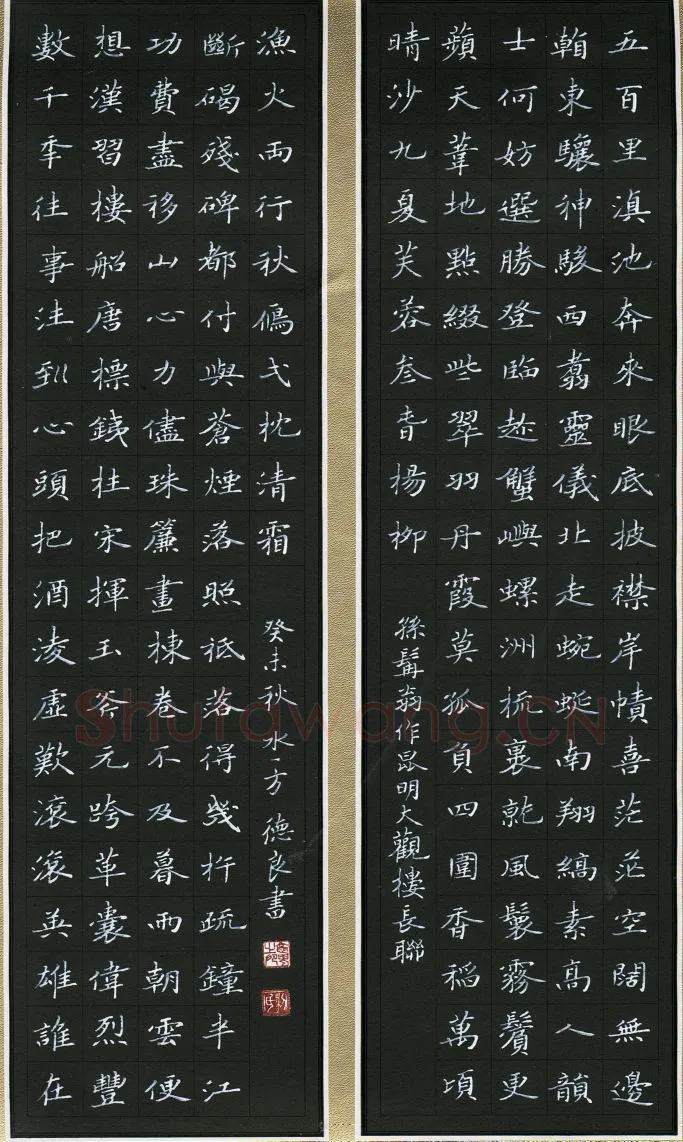 五百里滇池奔來眼底披襟岸幘喜茫茫空闊無邊
看東驤神駿西翥靈儀北走蜿蜒南翔縞素高人韻
士何妨選勝登臨趁蟹嶼螺洲梳裹就風鬟霧鬢更
蘋天葦地點綴些翠羽丹霞莫孤負四圍香稻萬頃
晴沙九夏芙蓉叁春楊柳
孫髯翁作昆明大觀樓長聯
數千季往事注到心頭把酒淩虛歎滾滾英雄誰在
想漢習樓船唐標銕柱宋揮玉斧元跨革囊偉烈豐
功費盡移山心力儘珠簾畫棟卷不及暮雨朝雲便
斷碣殘碑都付與蒼煙落照祗落得幾杵疏鐘半江
漁火兩行秋鴈弌枕清霜
癸未秋水一方德良書
Shufawang.CN